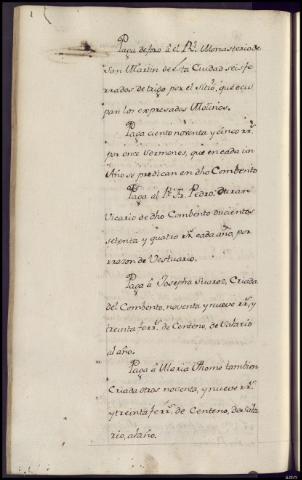 Paga de foro á el R.l Monasterio de
San Martin de esta Ciudad seis fe
rrados de trigo por el sitio, que ocu
pan los expresados Molinos.
Paga ciento noventa y cinco rr.s
por once Sermones, que en cada un
Año se predican en dho Combento
Paga al P.e Fr. Pedro Duran
Vicario de dho Combento ducientos
setenta y quatro rr.s cada año, por
rrazon de Vestuario.
Paga á Josepha Suarez, Criada
del Combento, noventa y nueve rr.s, y
treinta ferr.s de Centeno, de Salario
al año.
Paga á Maria Thome tambien
Criada otros noventa, y nueve rr.s
y treinta ferr.s de Centeno, de sala
rio, al año.